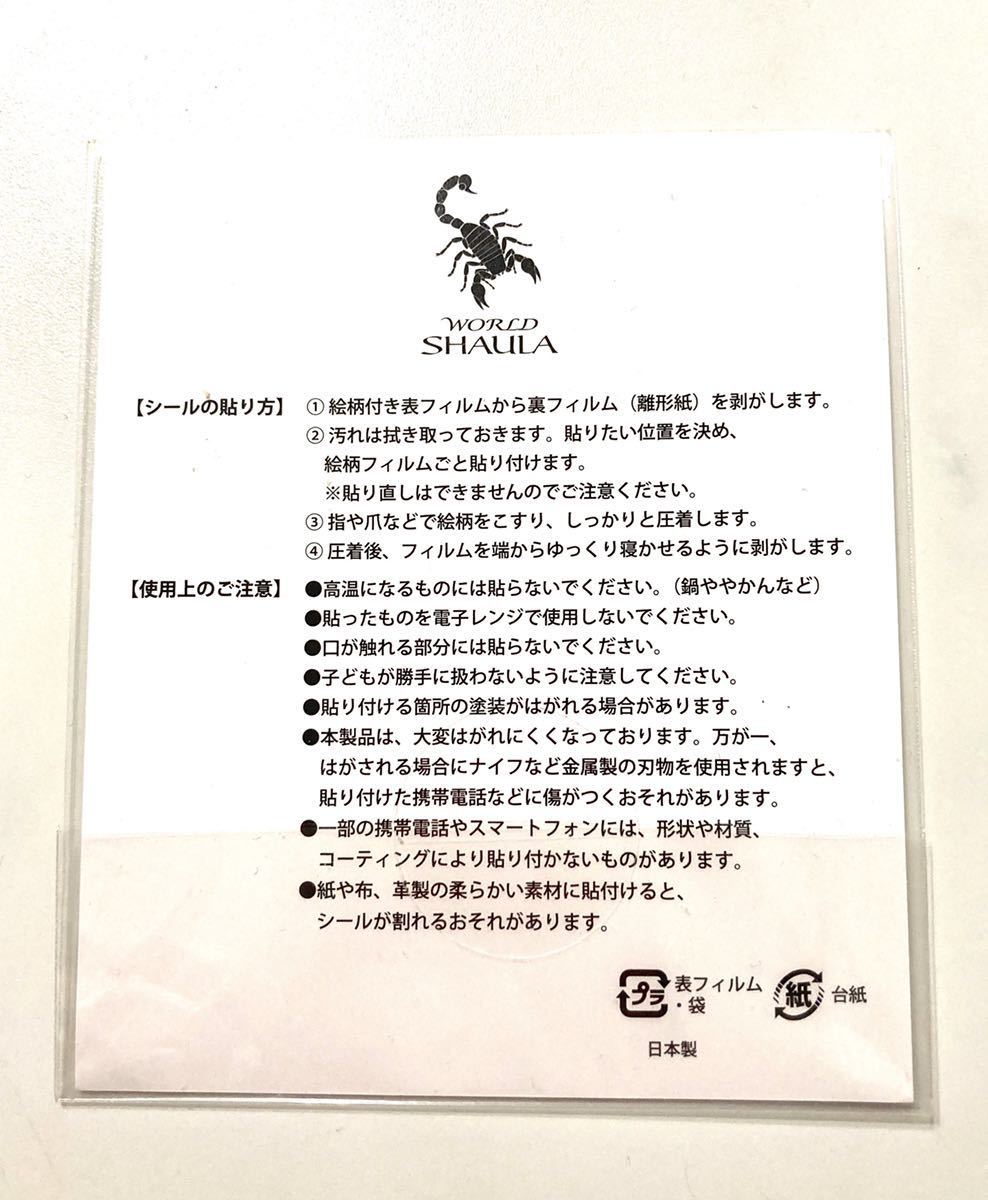 WORLD
SHAULA
【シールの貼り方】 ① 絵柄付き表フィルムから裏フィルム（離形紙）を剥がします。
② 汚れは拭き取っておきます。貼りたい位置を決め、
絵柄フィルムごと貼り付けます。
※貼り直しはできませんのでご注意ください。
③ 指や爪などで絵柄をこすり、しっかりと圧着します。
④ 圧着後、フィルムを端からゆっくり寝かせるように剥がします。
【使用上のご注意】 ●高温になるものには貼らないでください。（鍋ややかんなど）
●貼ったものを電子レンジで使用しないでください。
●口が触れる部分には貼らないでください。
●子どもが勝手に扱わないように注意してください。
●貼り付ける箇所の塗装がはがれる場合があります。
●本製品は、大変はがれにくくなっております。万が一、
はがされる場合にナイフなど金属製の刃物を使用されますと、
貼り付けた携帯電話などに傷がつくおそれがあります。
●一部の携帯電話やスマートフォンには、形状や材質、
コーティングにより貼り付かないものがあります。
●紙や布、革製の柔らかい素材に貼付けると、
シールが割れるおそれがあります。
プラ 表フィルム
・袋
紙 台紙
日本製